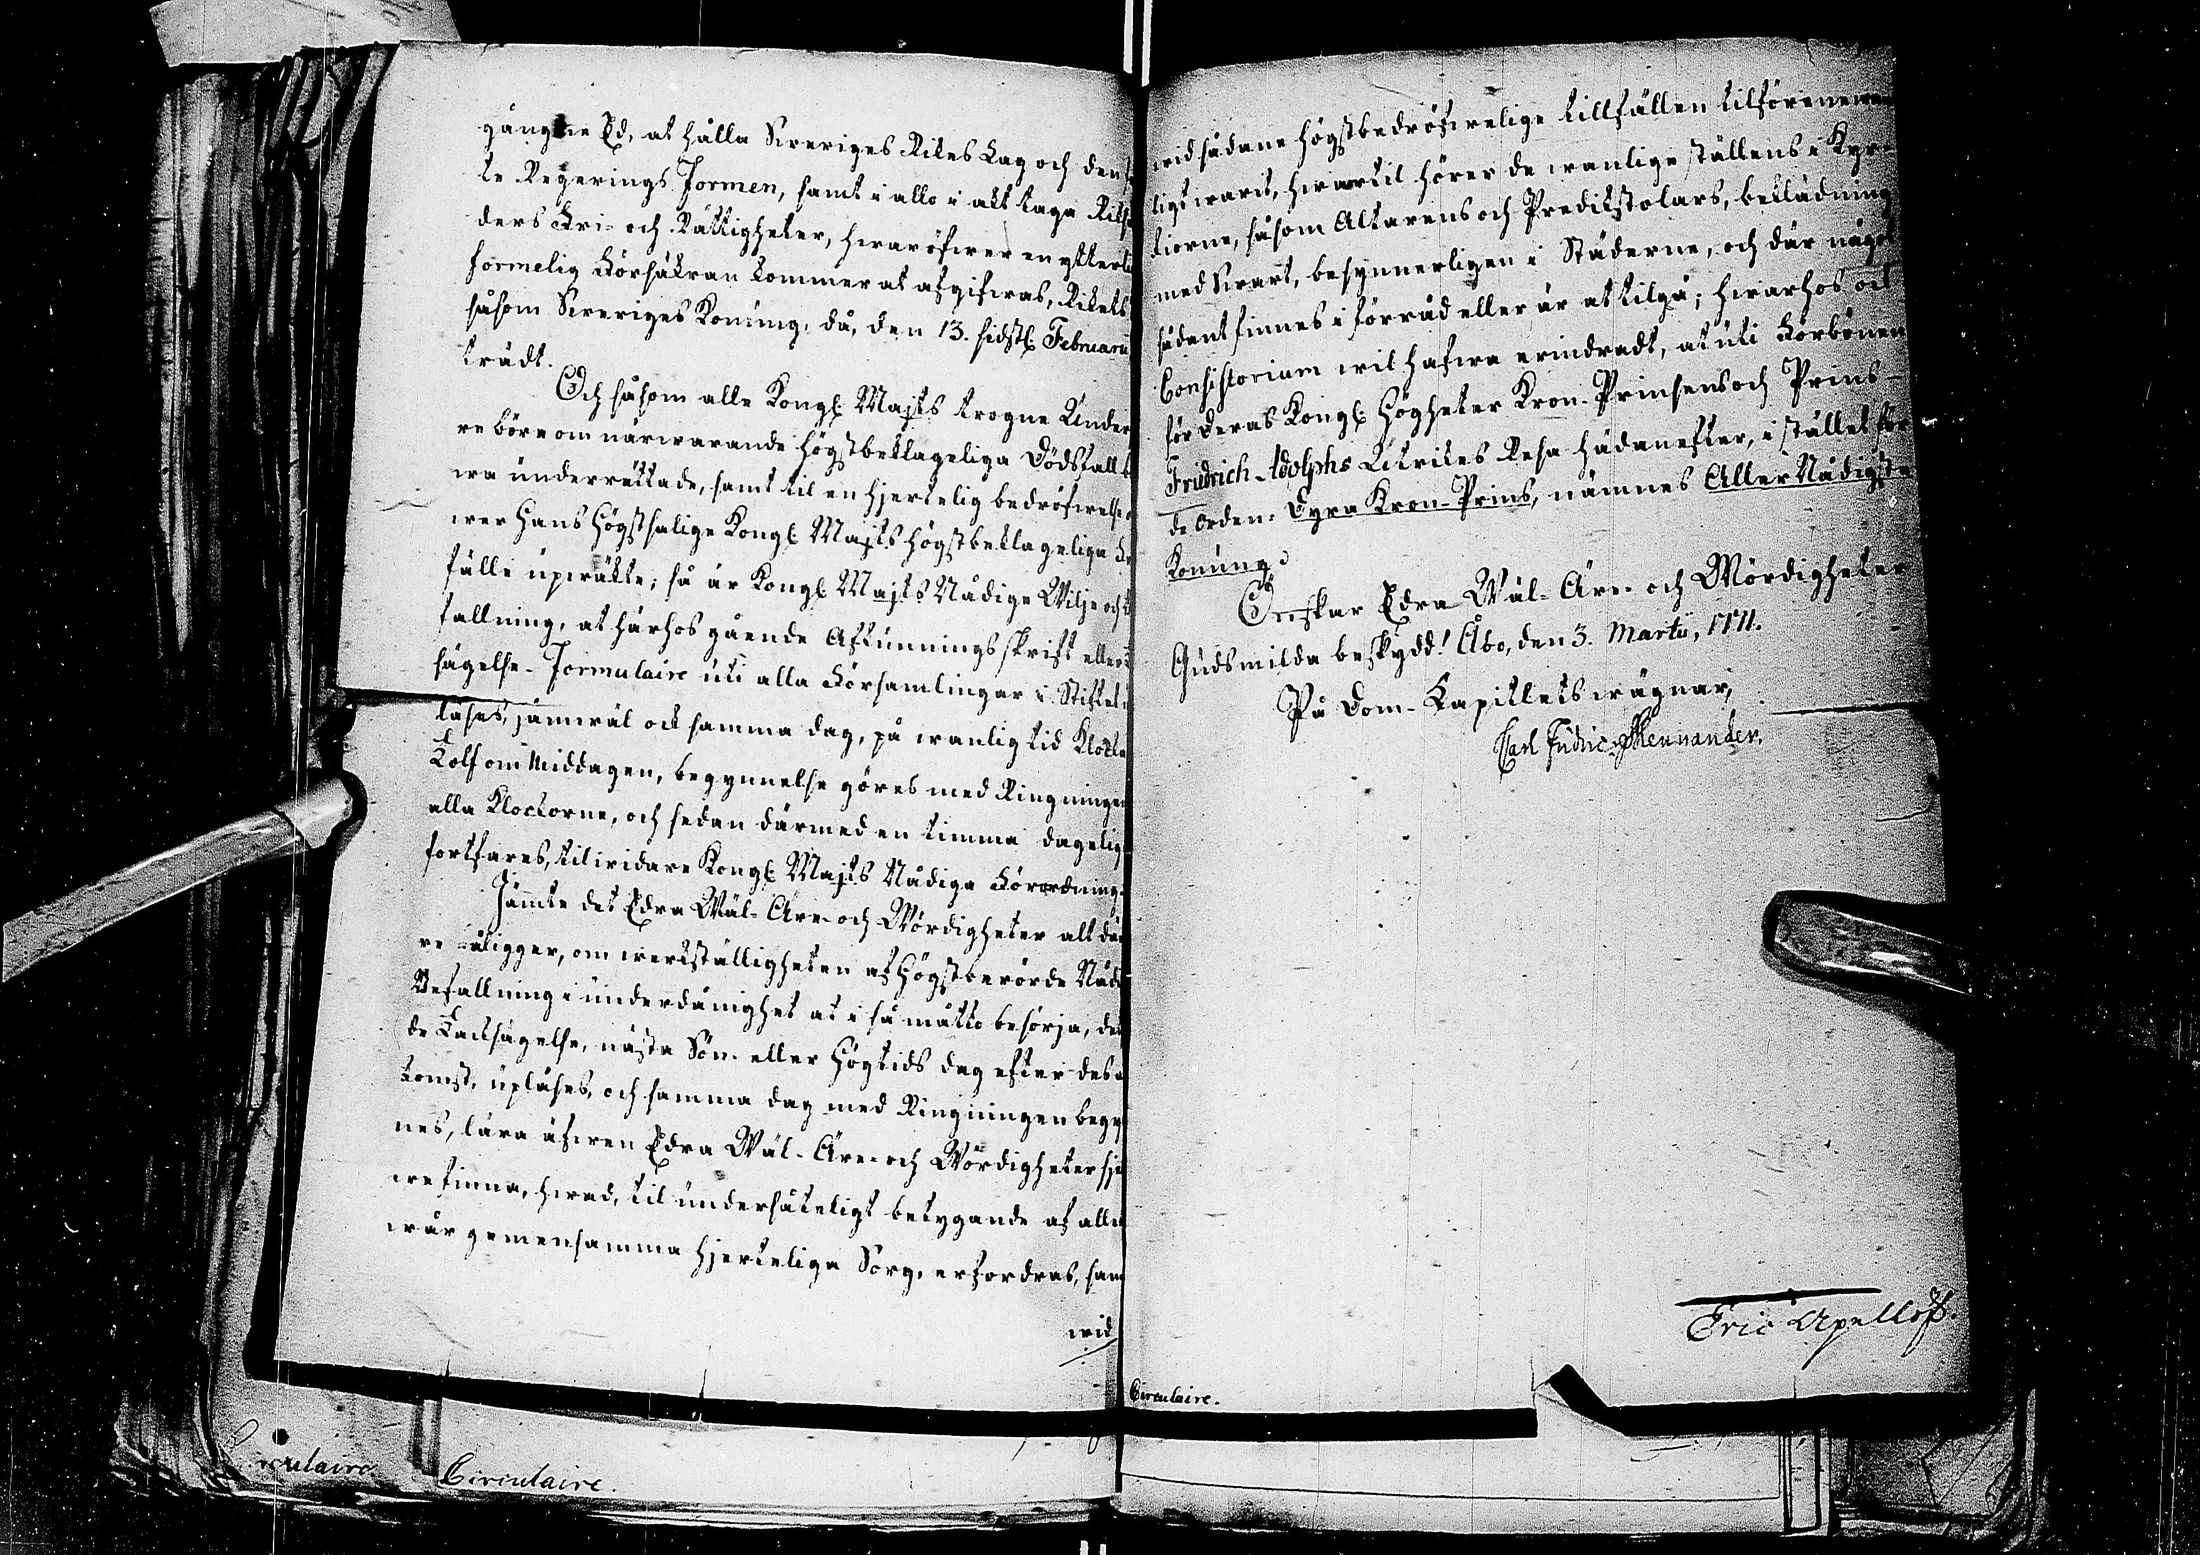 gångne Ed, at hålla Sweriges Rikes Lag och den
te Regerings Formen, samt i allo i akt taga Riks
ders Fri- och Rättigheter, hwaröfwer en ytterli
formelig Försäkran kommer at afgifwas, Rikets
såsom Sweriges Konung, då, den 13. sidstl: Februarii
trädt.
Och såsom alle Kongl: Majts trogne Under
re böre om närwarande högstbeklageliga Dödsfall b
wa underrättade, samt til en hjertelig bedröfwelse ö
wer Hans Högstsalige Kongl: Majts högstbeklageliga
fälle upwäkte; så är Kongl: Majts Nådige Wilje och
fallning, at härhos gående Afkunnings skrift eller
sägelse-Formulaire uti alla Församlingar i Stiftet
läses, jämwäl ock samma dag, på wanlig tid Klocka
Tolf om Middagen, begynnelse göres med Ringningen
alla Klockorne, och sedan därmed en timma dagelig
fortfares, til widare Kongl: Majts Nådiga Förordning.
Jämte det Edra Wäl-Äre- och Wördigheter alt
re åligger, om werkställigheten af Högstberörde Nådi
Befallning i underdånighet at i så måtto besörja, de
de Tacksägelse, nästa Sön- eller Högtids dag efter des
komst, upläses, och samma dag med Ringningen begy
nes, lära äfwen Edra Wäl-Äre- och Wördigheter sje
we finna, hwad, til undersåteligt betygande af alle
wår gemensamma hjerteliga Sorg, erfordras, sam
wid
wid sådane högstbedröfwelige tillfällen tilförene wa
ligt warit, hwartil hörer de wanlige ställens i Kyr-
kiorne, såsom Altarens och Predikstolars, beklädning
med Swart, besynnerligen i Städerne, och där något
sådant finnes i förråd eller är at tilgå; hwarhos ock
Consistorium wil hafwa erindradt, at uti Förbönen
för Deras Kongl: Högheter Kron-Prinsens och Prins
Friedrich Adolphs Utrikes Resa hädanefter, i stället för
de orden: Dyra Kron-Prins, nämnes Aller Nådigste
Konung.
Önskar Edra Wäl-Äre- och Wördigheter
Guds milda beskydd! Åbo, den 3. Martii, 1771.
På Dom-Capitlets wägnar,
Carl Fridric Mennander.
Eric Apelloff.
Circulaire.
Circulaire.
Circulaire.